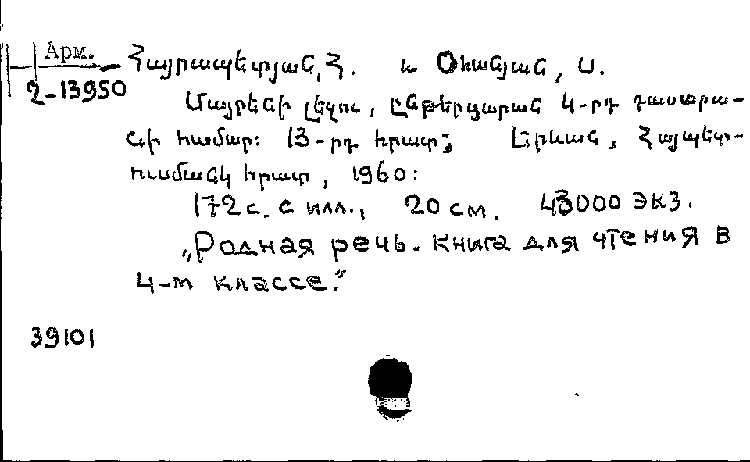 Арм.
2-13950
Հայրապետյան, Հ. և Օհանյան, Ս.
Մայրենի լեզու, ընթերցարան 4-րդ դասարա-
նի համար: 13-րդ հրատ; Երևան, Հայպետ-
ուսմանկ հրատ, 1960:
172 с. с илл., 20 см. 43000 экз.
„Родная речь. Книга для чтения в
4-м классе."
39101